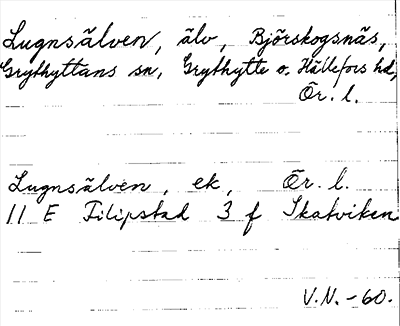 Lugnsälven, älv, Björskogsnäs,
Grythyttans sn, Grythytte o. Hällefors hd,
Ör. l.
Lugnsälven, ek, Ör. l.
11 E Filipstad 3 f Skatviken
V.N. -60.